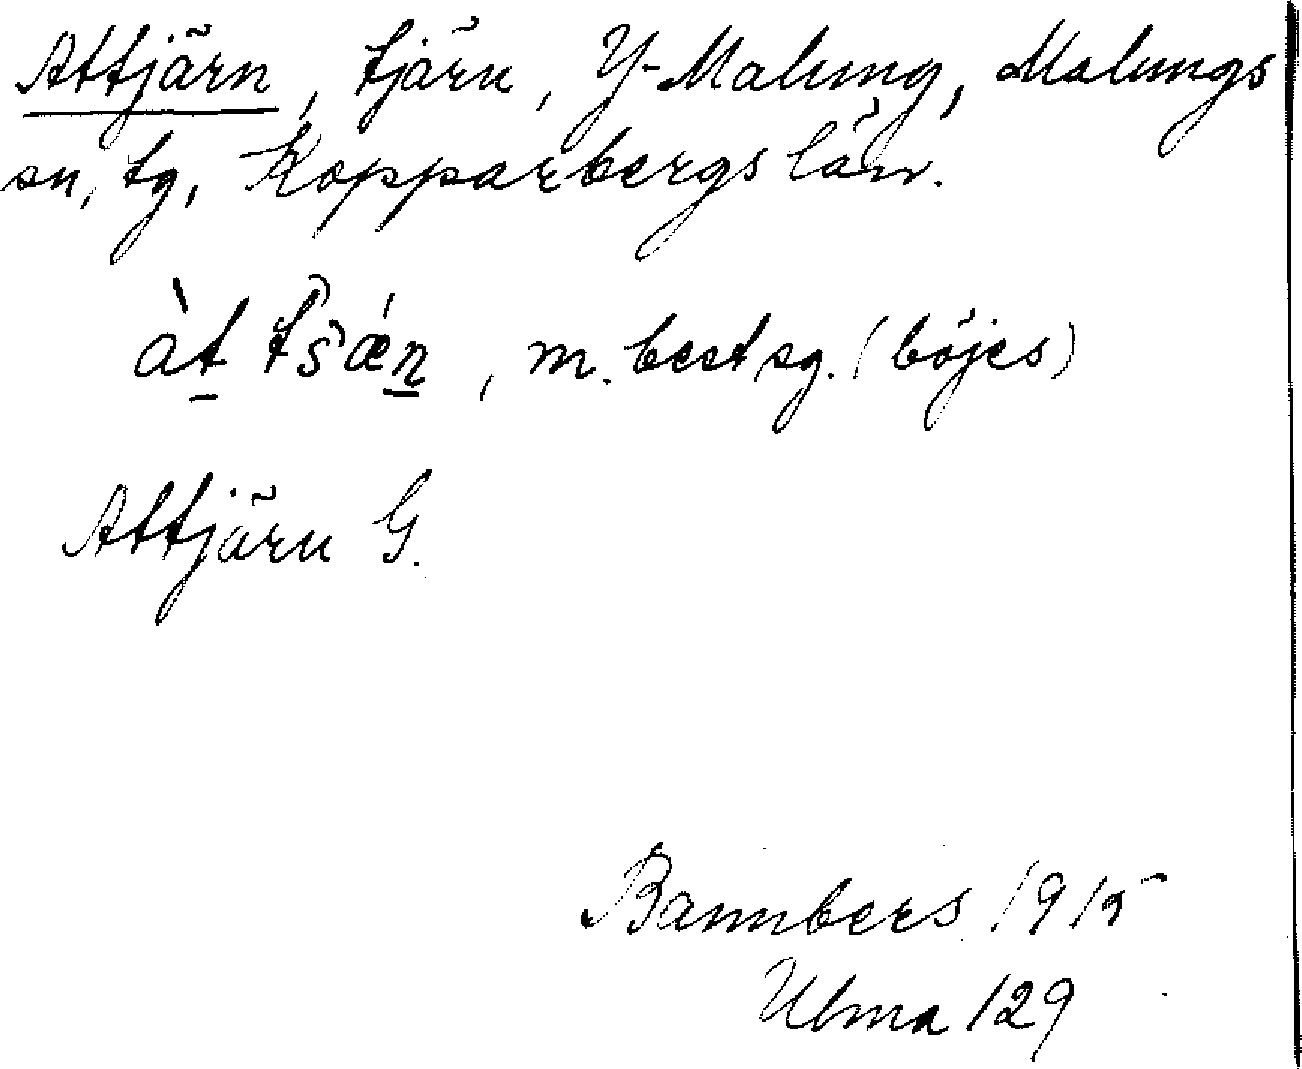 Attjärn, tjärn, Y-Malung, Malungs
sn, tg, Kopparbergs län.
àt tšǽn, m. best sg. (böjes)
Attjärn G.
Bannbers 1915
Ulma 129